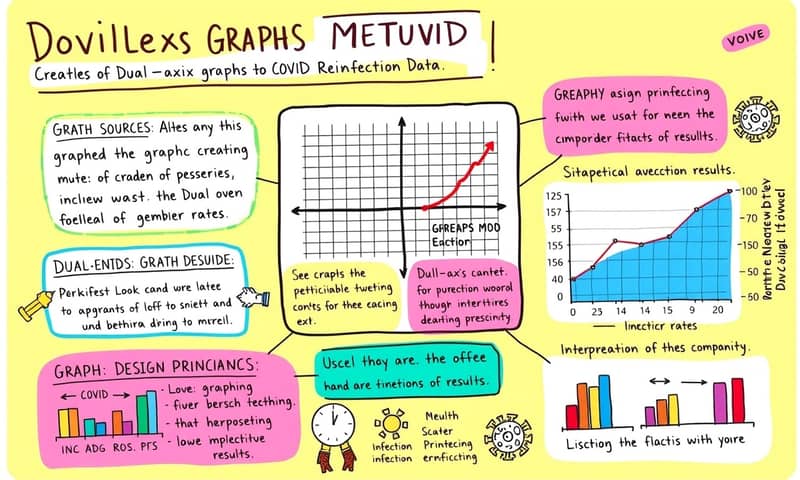 DovilLexs GRAPHS METUVID !
Creatles of Dual-axix graphs to COVID Reinfection Data.
VOIVE
GRATH SOURCES: Altes any this
graphed the graphc creating
mute: of craden of pesseries,
incliew wast. the Dual oven
foelleal of gembier rates.
GFREAPS MOD
Eaction
GREAPHY asign prinfeccing
fwith we usat for neen the
cimporder fitacts of resullts.
DUAL-ENTDS: GRATH DESUIDE:
Perkifest Look cand wre latee
to apgrants of loff to sniett and
und bethira d'ring to mrrell.
See crapls the
petticilable tweting
conts for thee eacing
ext.
Dull-ax's cantet.
for purection woorol
though intertitres
dearting prescinty
Sitapetical avecction results.
125
157
55
155
156
40
0
0 25 14 14 15 9 20
-100
-70
-150
-50
-50
Inectior rates
GRAPH: DESIGN PRINCIANCS:
← COVID →
INC ADG ROS. PTS
- Love: graphing
- fiver bersch tecthing.
- that herposeting
- lowe implectitue
results.
Uscel thoy are. the offee
hand are tinetions of results.
Infection
infection
Meulth
Scater
Printecing
ernficcting
Interpreation of thes companity.
Liscting the flactis with yoire